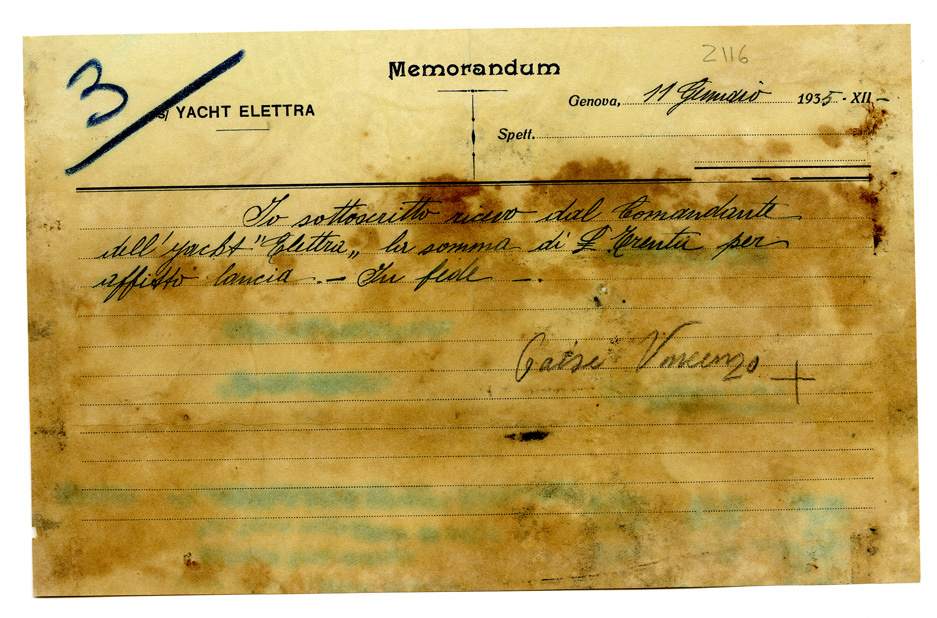 2116
3
Memorandum
s/ YACHT ELETTRA
Genova, 11 Gennaio 1935 - XII -
Spett.
Io sottoscritto ricevo dal Comandante
dell'yacht "Elettra„ la somma di £ Trenta per
affitto lancia. — In fede —.
Vincenzo